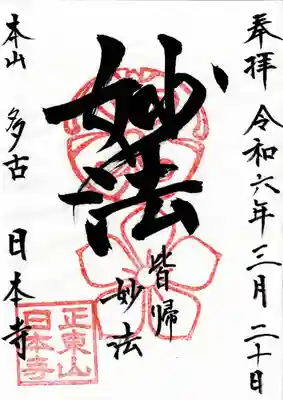 奉拝 令和六年三月二十日
妙法
皆帰妙法
本山 多古 日本寺
正東山
日本寺